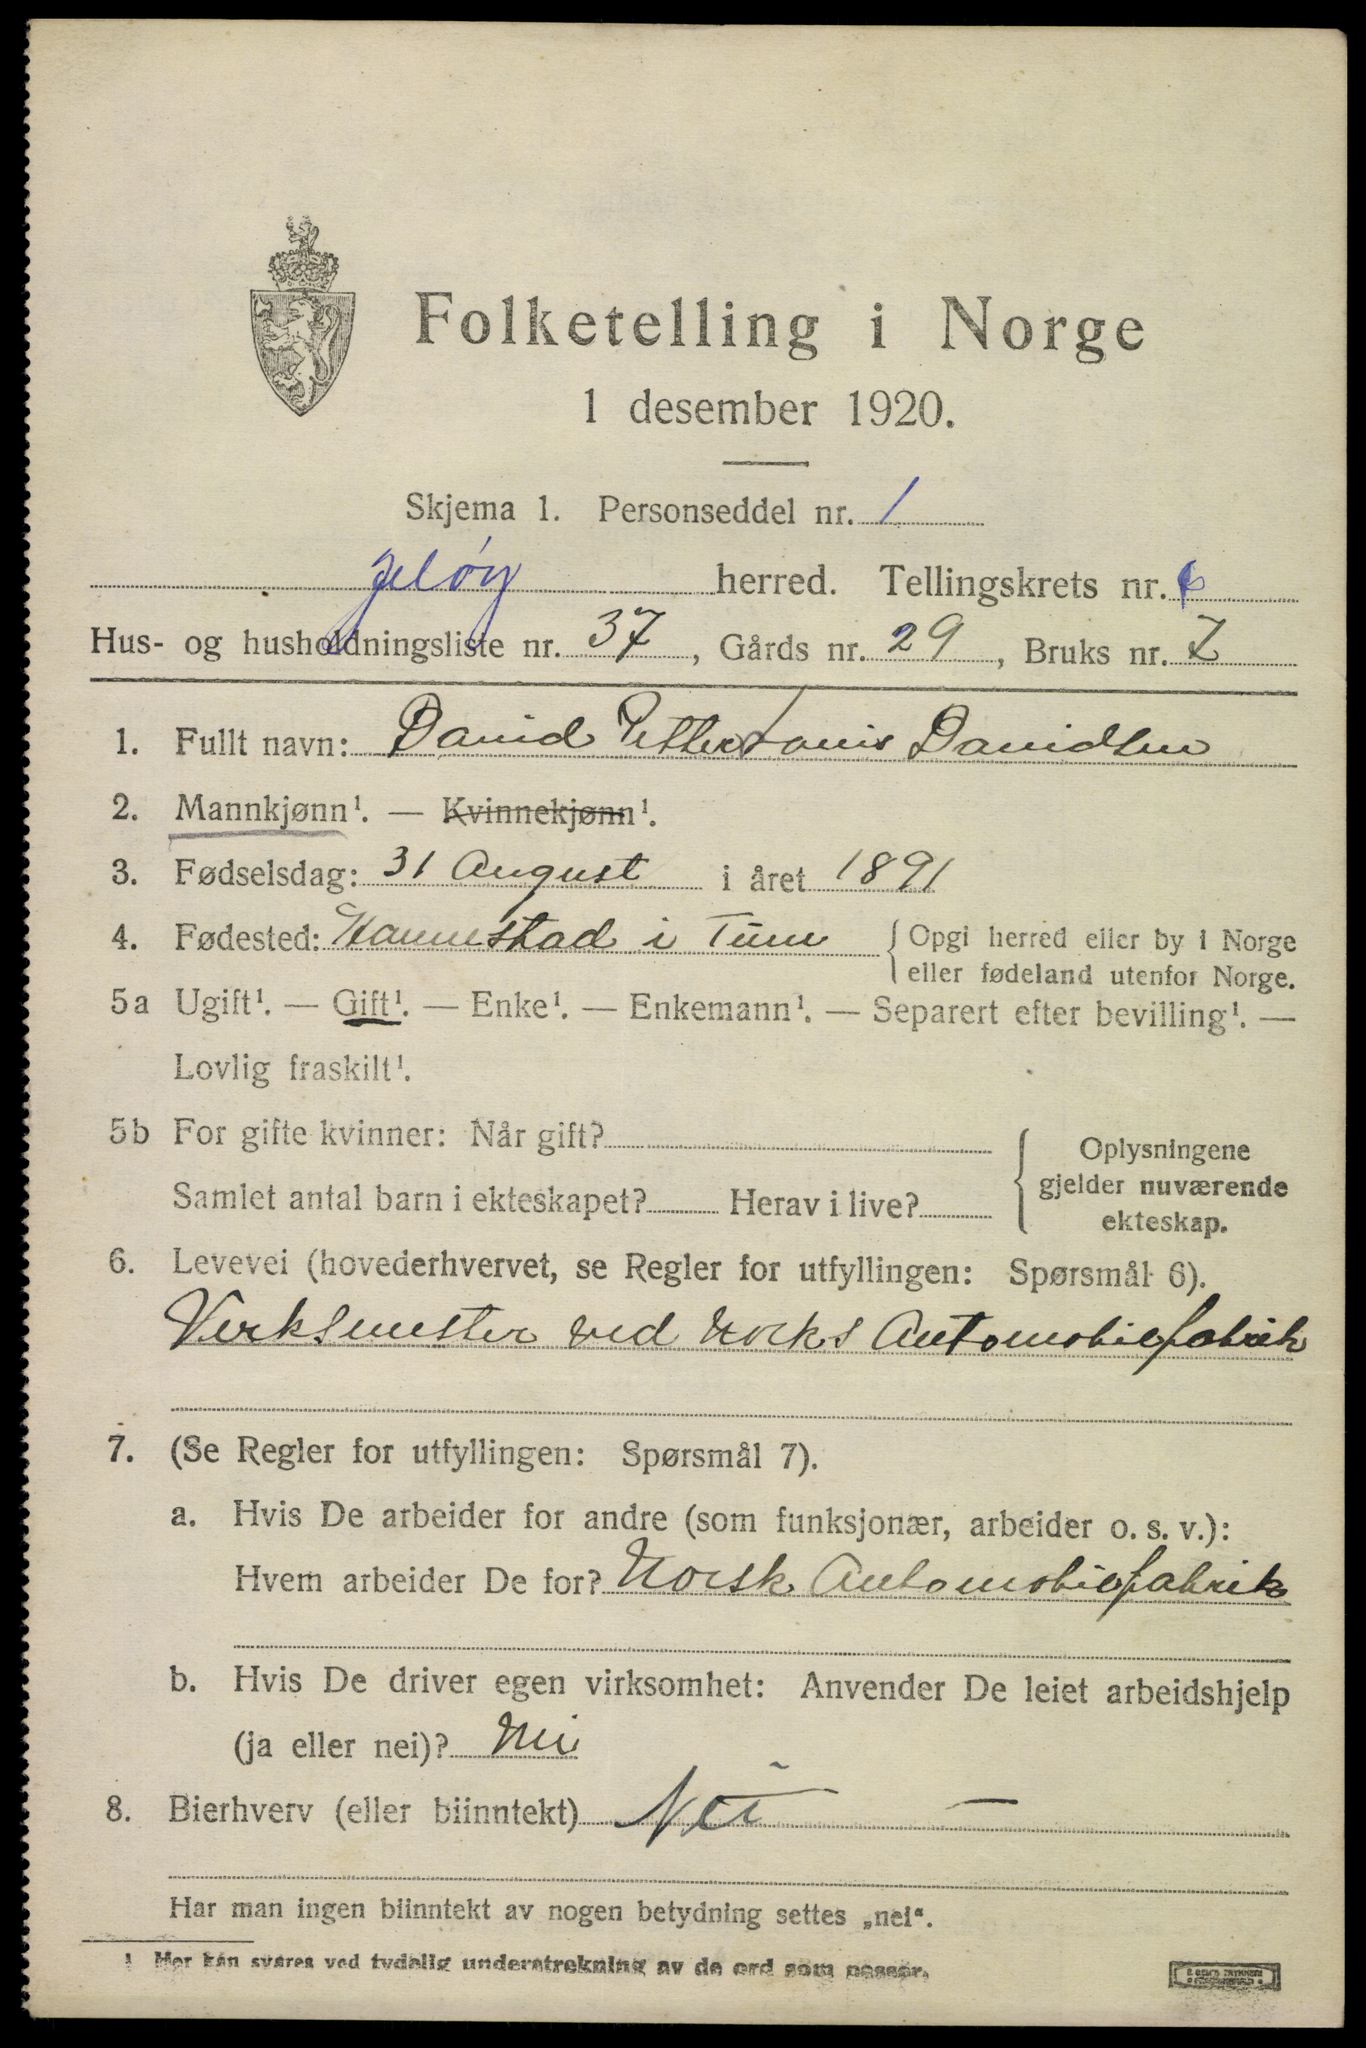 Folketelling i Norge
1 desember 1920.
Skjema 1. Personseddel nr. 1
Jeløy herred. Tellingskrets nr.
Hus- og husholdningsliste nr. 37, Gårds nr. 29, Bruks nr. 7
1. Fullt navn: David Petter Louis Davidsen
2. Mannkjønn¹. — Kvinnekjønn¹.
3. Fødselsdag: 31 August i året 1891
4. Fødested: Hannestad i Tune { Opgi herred eller by i Norge
eller fødeland utenfor Norge.
5a Ugift¹. — Gift¹. — Enke¹. — Enkemann¹. — Separert efter bevilling¹. —
Lovlig fraskilt¹.
5b For gifte kvinner: Når gift? { Oplysningene
gjelder nuværende
Samlet antal barn i ekteskapet? Herav i live?
ekteskap.
6. Levevei (hovederhvervet, se Regler for utfyllingen: Spørsmål 6).
Verksmester ved Norks Automobilfabrik
7. (Se Regler for utfyllingen: Spørsmål 7).
a. Hvis De arbeider for andre (som funksjonær, arbeider o. s. v.):
Hvem arbeider De for? Norsk Automobilfabrik
b. Hvis De driver egen virksomhet: Anvender De leiet arbeidshjelp
(ja eller nei)? Nei
8. Bierhverv (eller biinntekt) Nei —
Har man ingen biinntekt av nogen betydning settes „nei“.
1 Her kan svares ved tydelig understrekning av de ord som passer.